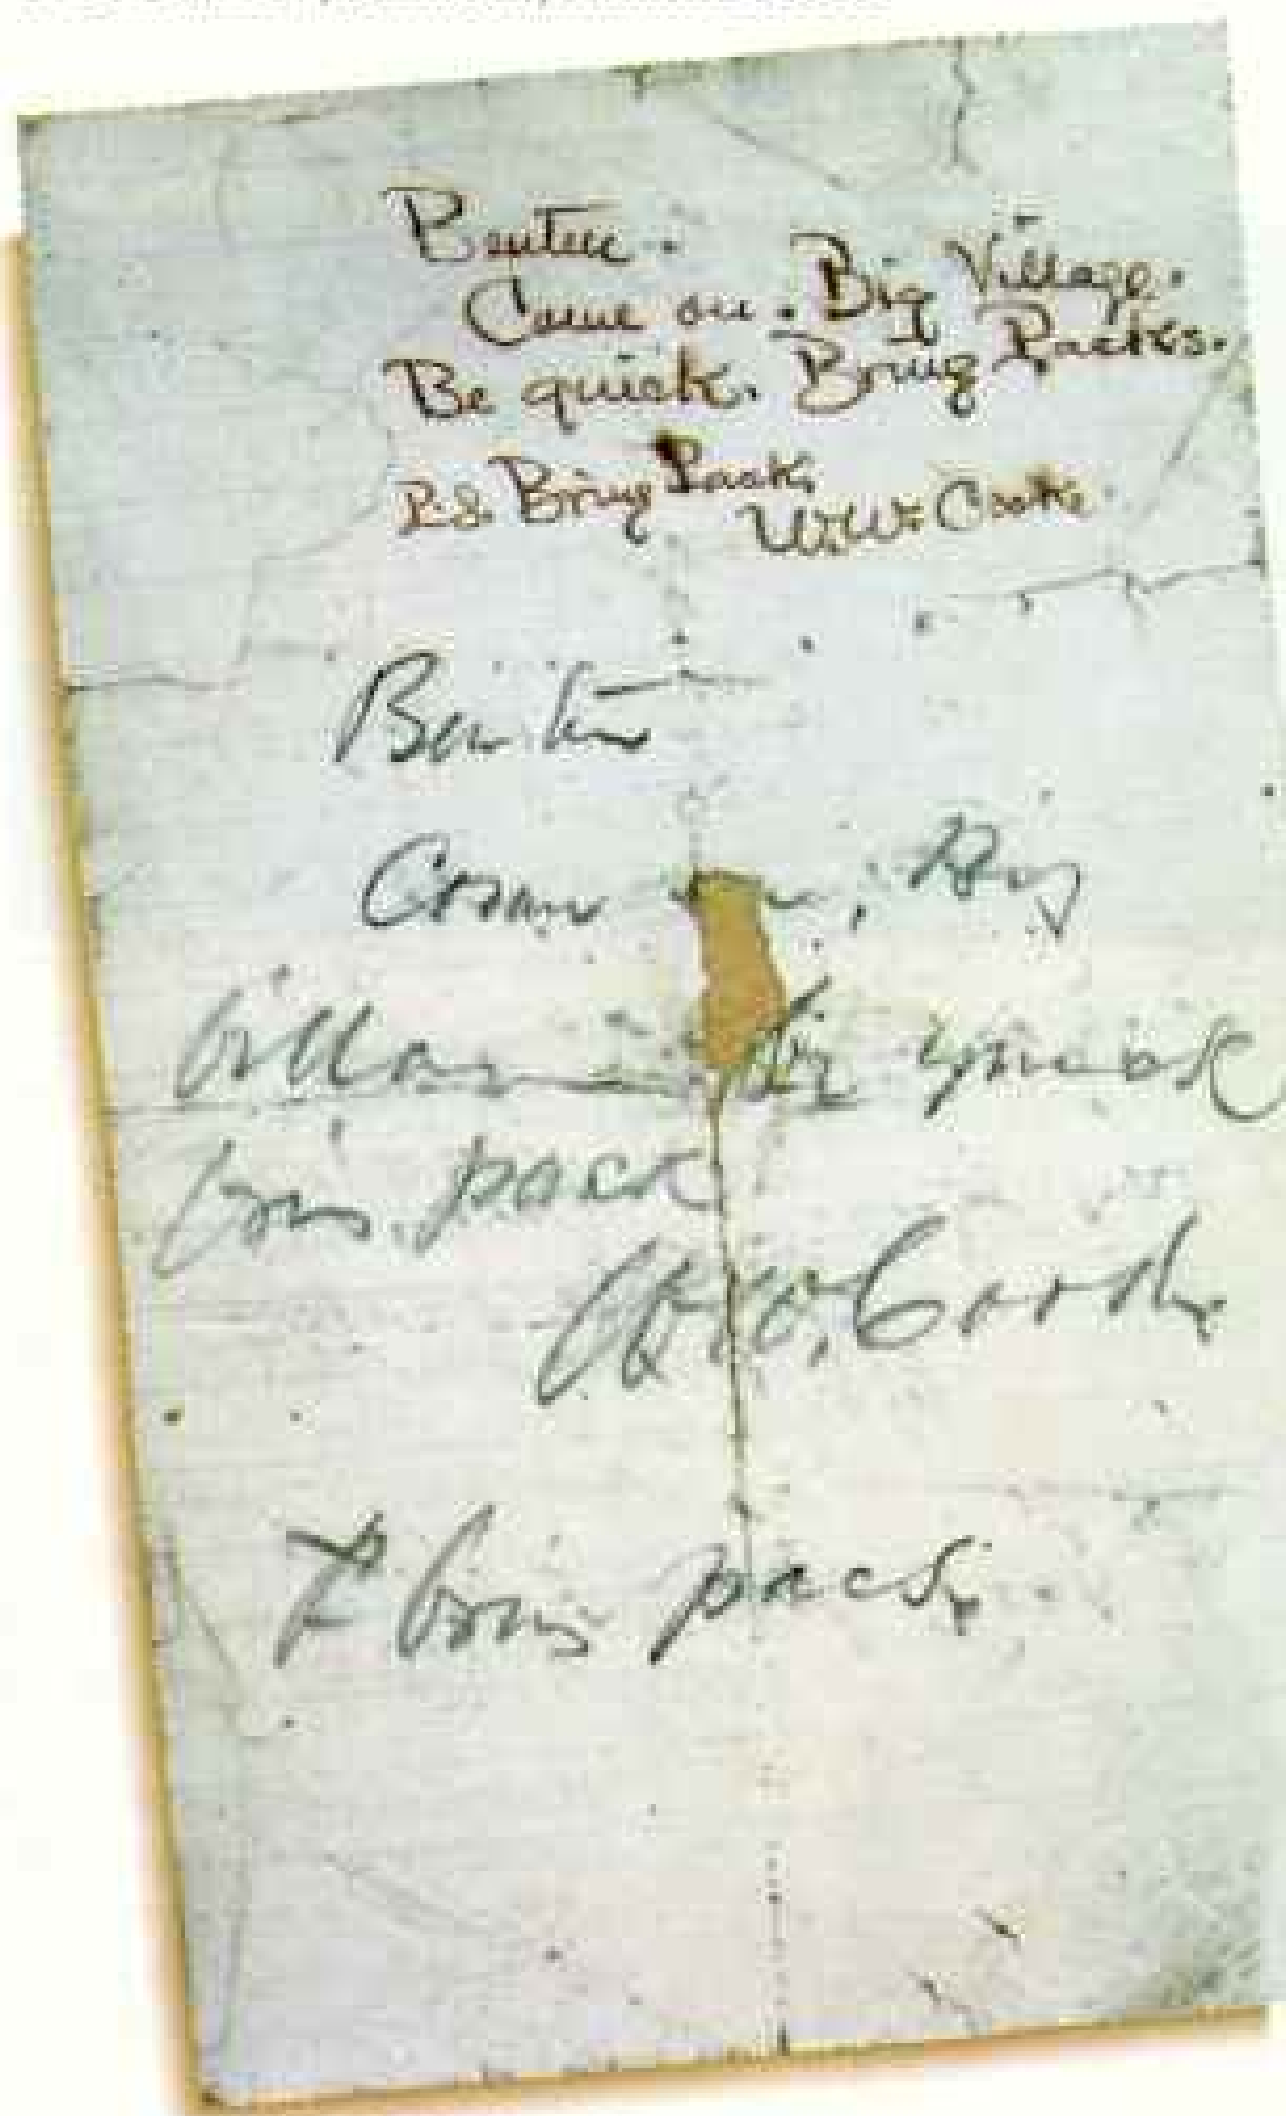 Benteen.
Come on. Big Village.
Be quick. Bring Packs.
P.S. Bring Packs.
W.W. Cooke
Benteen
Come on. Big
Village be quick
bring packs
W.W. Cooke
P bring pacs